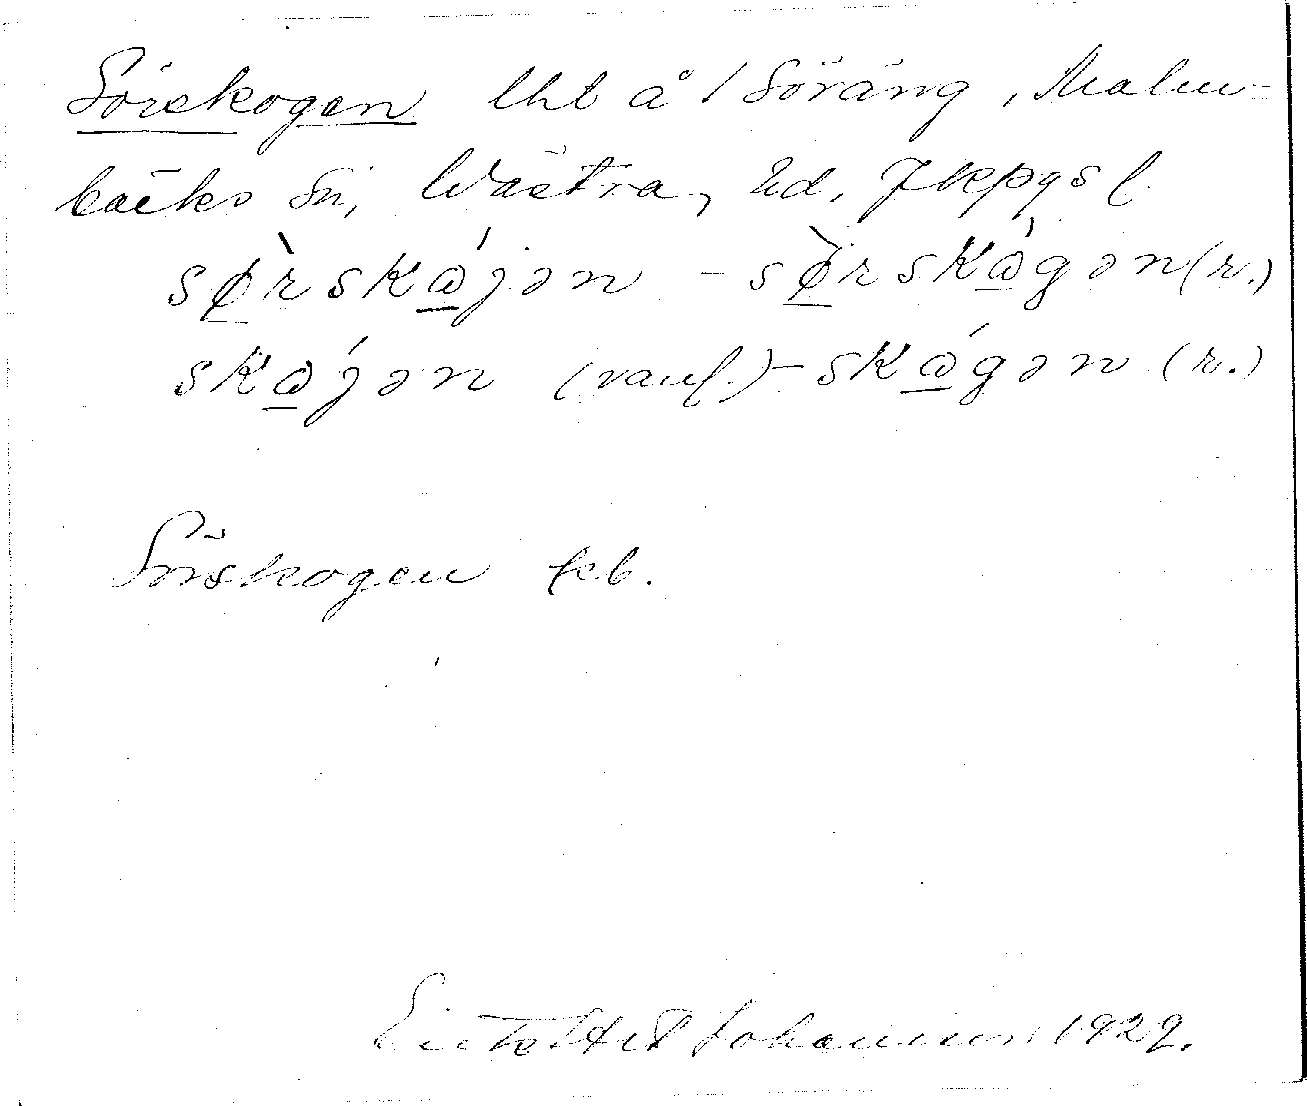 Sörskogen lht å 1 Söräng, Malm-
bäcks sn, Västra hd. Jkpgs l.
sø̀rskɷ́jən - sø̀rskɷ́gən (r.)
skɷ́jən (vanl.) - skɷ́gən (r.)
Sörskogen kb.
Johansson 1929.